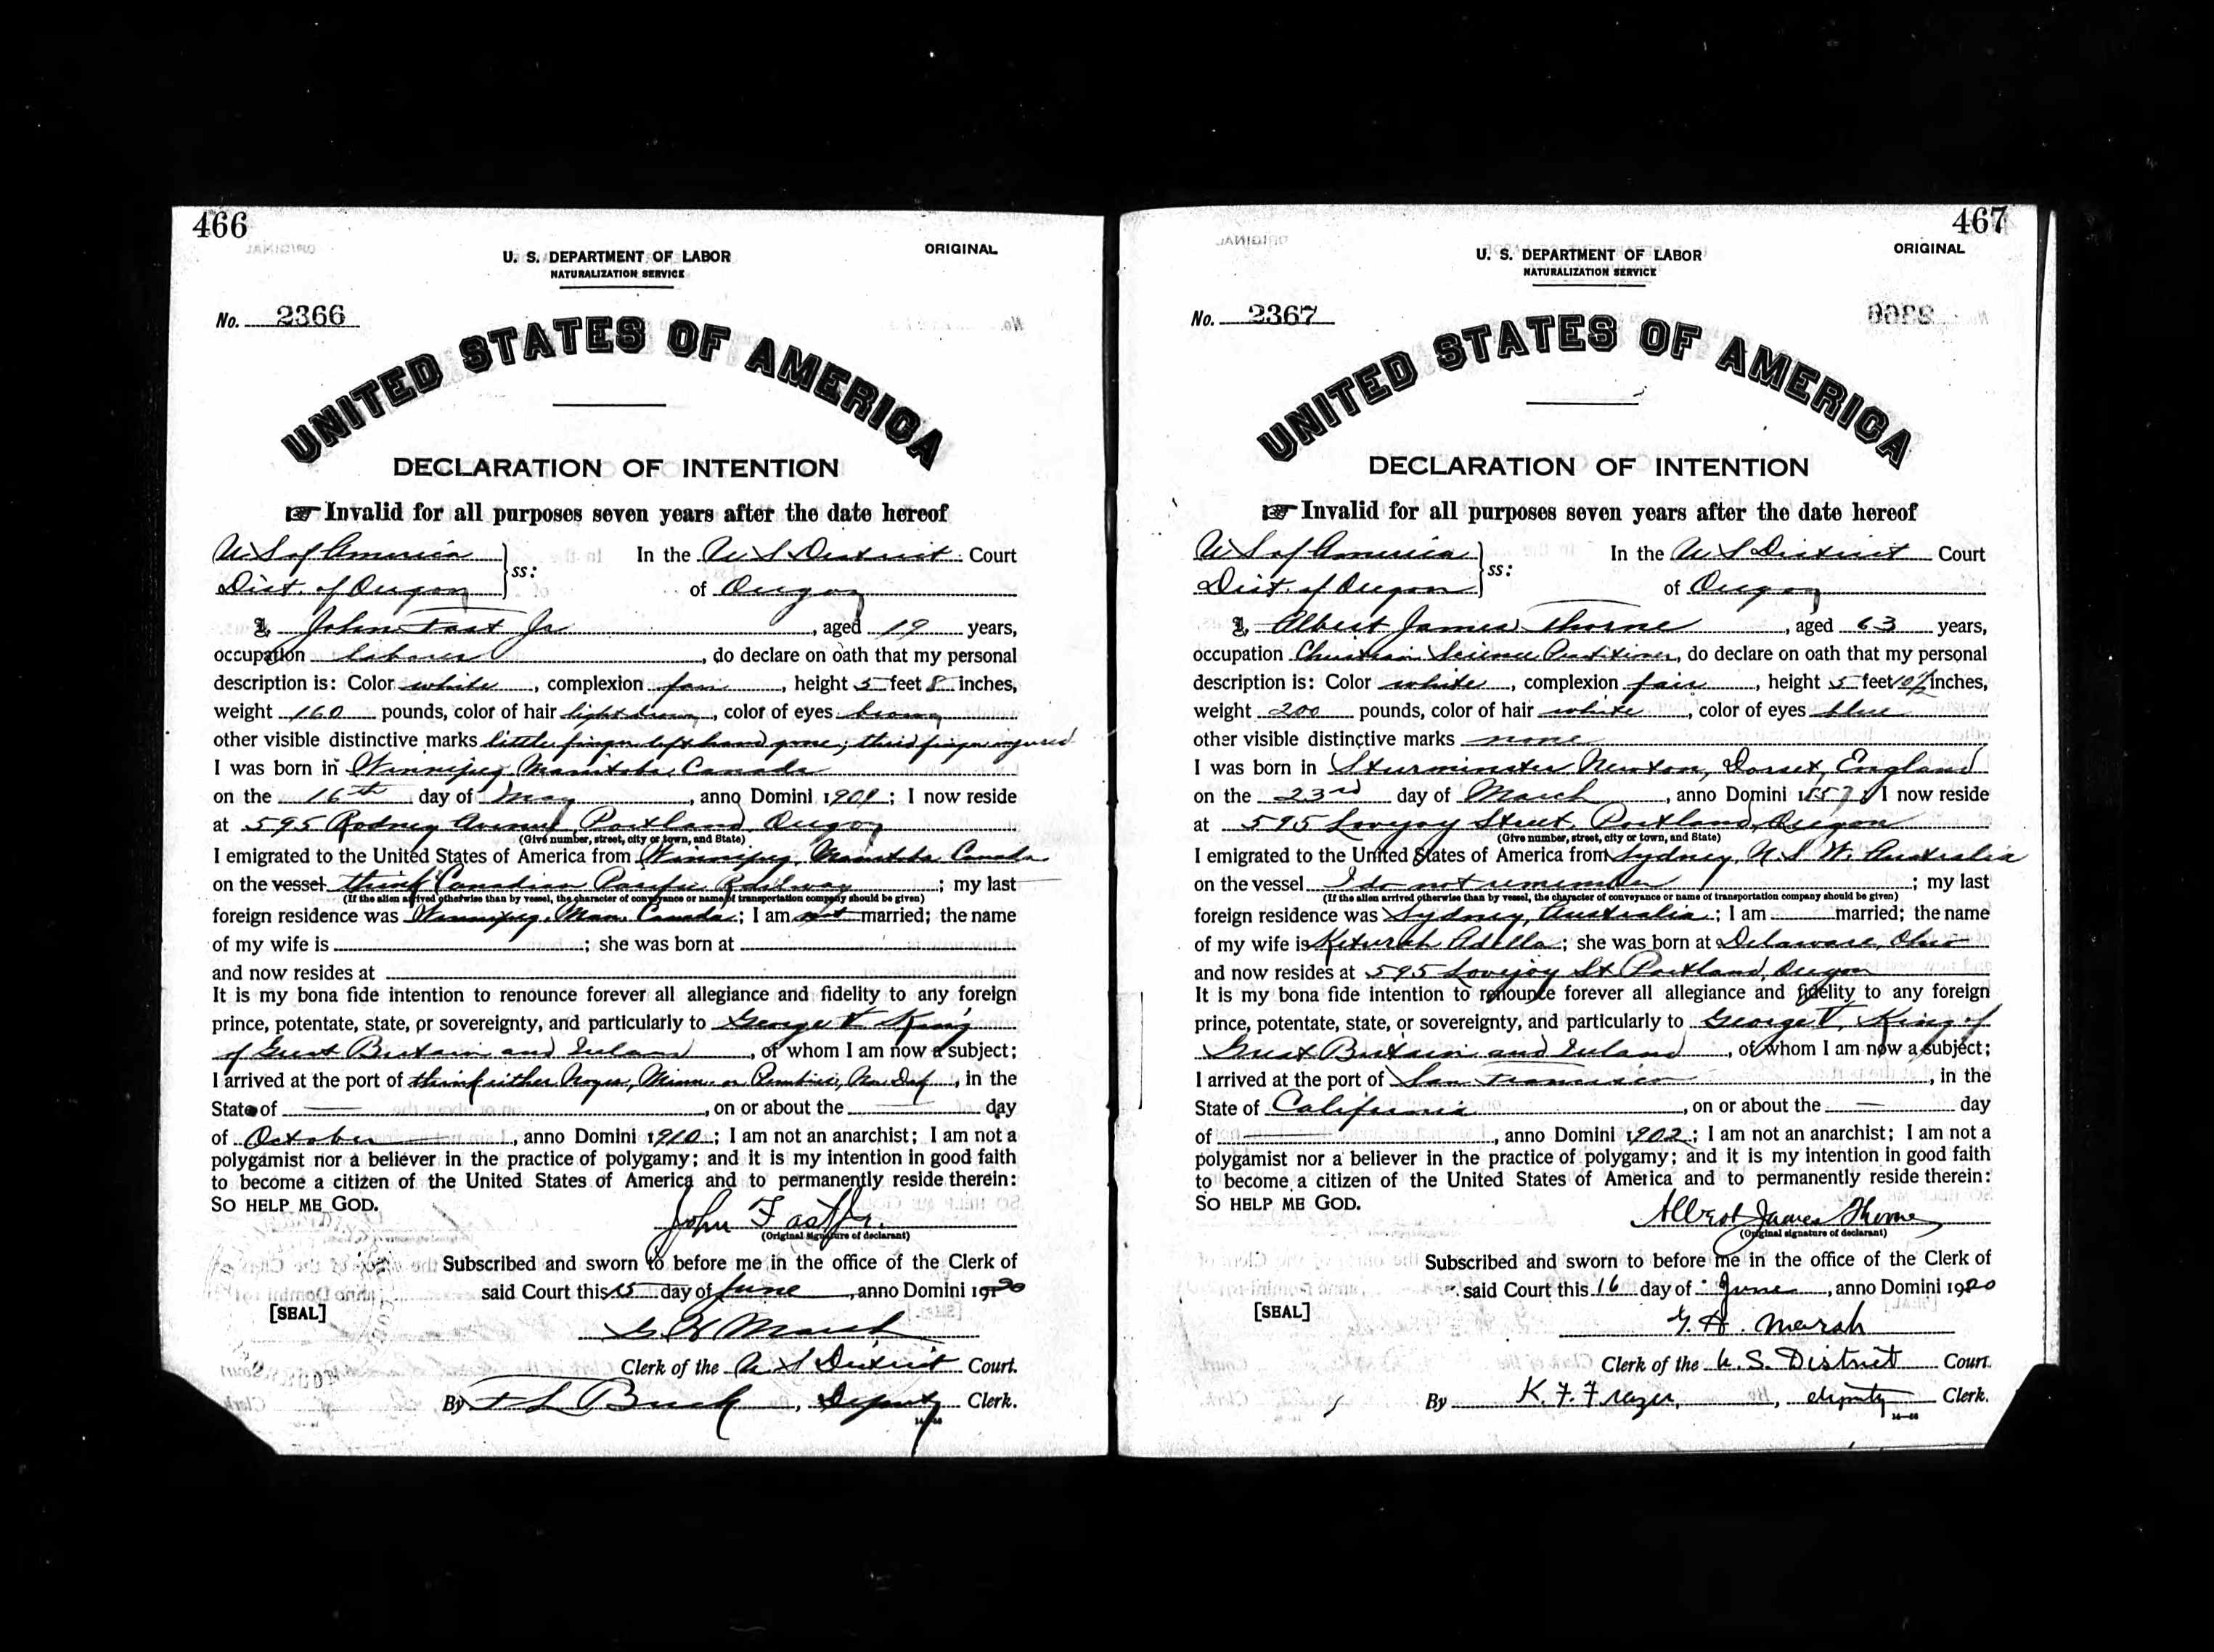 466
ORIGINAL
U. S. DEPARTMENT OF LABOR
NATURALIZATION SERVICE
No. 2366
UNITED STATES OF AMERICA
DECLARATION OF INTENTION
☞ Invalid for all purposes seven years after the date hereof
U S of America } ss: In the U S District Court
Dist. of Oregon of Oregon
I, John Fast Jr, aged 19 years,
occupation laborer, do declare on oath that my personal
description is: Color white, complexion fair, height 5 feet 8 inches,
weight 160 pounds, color of hair light brown, color of eyes brown
other visible distinctive marks little finger left hand gone; third finger injured
I was born in Winnipeg, Manitoba, Canada
on the 16th day of May, anno Domini 1901; I now reside
at 595 Rodney Avenue, Portland, Oregon
(Give number, street, city or town, and State)
I emigrated to the United States of America from Winnipeg, Manitoba Canada
on the vessel think Canadian Pacific Railway; my last
(If the alien arrived otherwise than by vessel, the character of conveyance or name of transportation company should be given)
foreign residence was Winnipeg, Man. Canada; I am not married; the name
of my wife is ; she was born at
and now resides at
It is my bona fide intention to renounce forever all allegiance and fidelity to any foreign
prince, potentate, state, or sovereignty, and particularly to George V King
of Great Britain and Ireland, of whom I am now a subject;
I arrived at the port of think either Noyes, Minn. or Pembina, No. Dak, in the
State of —, on or about the — day
of October, anno Domini 1910; I am not an anarchist; I am not a
polygamist nor a believer in the practice of polygamy; and it is my intention in good faith
to become a citizen of the United States of America and to permanently reside therein:
SO HELP ME GOD.
John Fast Jr.
(Original signature of declarant)
Subscribed and sworn to before me in the office of the Clerk of
said Court this 15 day of June, anno Domini 1920
[SEAL]
G H Marsh
Clerk of the U S District Court.
By F L Buck, Deputy Clerk.
14—66
467
ORIGINAL
U. S. DEPARTMENT OF LABOR
NATURALIZATION SERVICE
No. 2367
UNITED STATES OF AMERICA
DECLARATION OF INTENTION
☞ Invalid for all purposes seven years after the date hereof
U S of America } ss: In the U S District Court
Dist. of Oregon of Oregon
I, Albert James Thorne, aged 63 years,
occupation Christian Science Practitioner, do declare on oath that my personal
description is: Color white, complexion fair, height 5 feet 10½ inches,
weight 200 pounds, color of hair white, color of eyes blue
other visible distinctive marks none
I was born in Sturminster Newton, Dorset, England
on the 23rd day of March, anno Domini 1857; I now reside
at 595 Lovejoy Street, Portland, Oregon
(Give number, street, city or town, and State)
I emigrated to the United States of America from Sydney, N. S. W. Australia
on the vessel I do not remember; my last
(If the alien arrived otherwise than by vessel, the character of conveyance or name of transportation company should be given)
foreign residence was Sydney, Australia; I am married; the name
of my wife is Keturah Adella; she was born at Delaware, Ohio
and now resides at 595 Lovejoy St Portland, Oregon
It is my bona fide intention to renounce forever all allegiance and fidelity to any foreign
prince, potentate, state, or sovereignty, and particularly to George V, King of
Great Britain and Ireland, of whom I am now a subject;
I arrived at the port of San Francisco, in the
State of California, on or about the — day
of —, anno Domini 1902; I am not an anarchist; I am not a
polygamist nor a believer in the practice of polygamy; and it is my intention in good faith
to become a citizen of the United States of America and to permanently reside therein:
SO HELP ME GOD.
Albert James Thorne
(Original signature of declarant)
Subscribed and sworn to before me in the office of the Clerk of
said Court this 16 day of June, anno Domini 1920
[SEAL]
G. H. Marsh
Clerk of the U. S. District Court.
By K. F. Frazer, deputy Clerk.
14—66